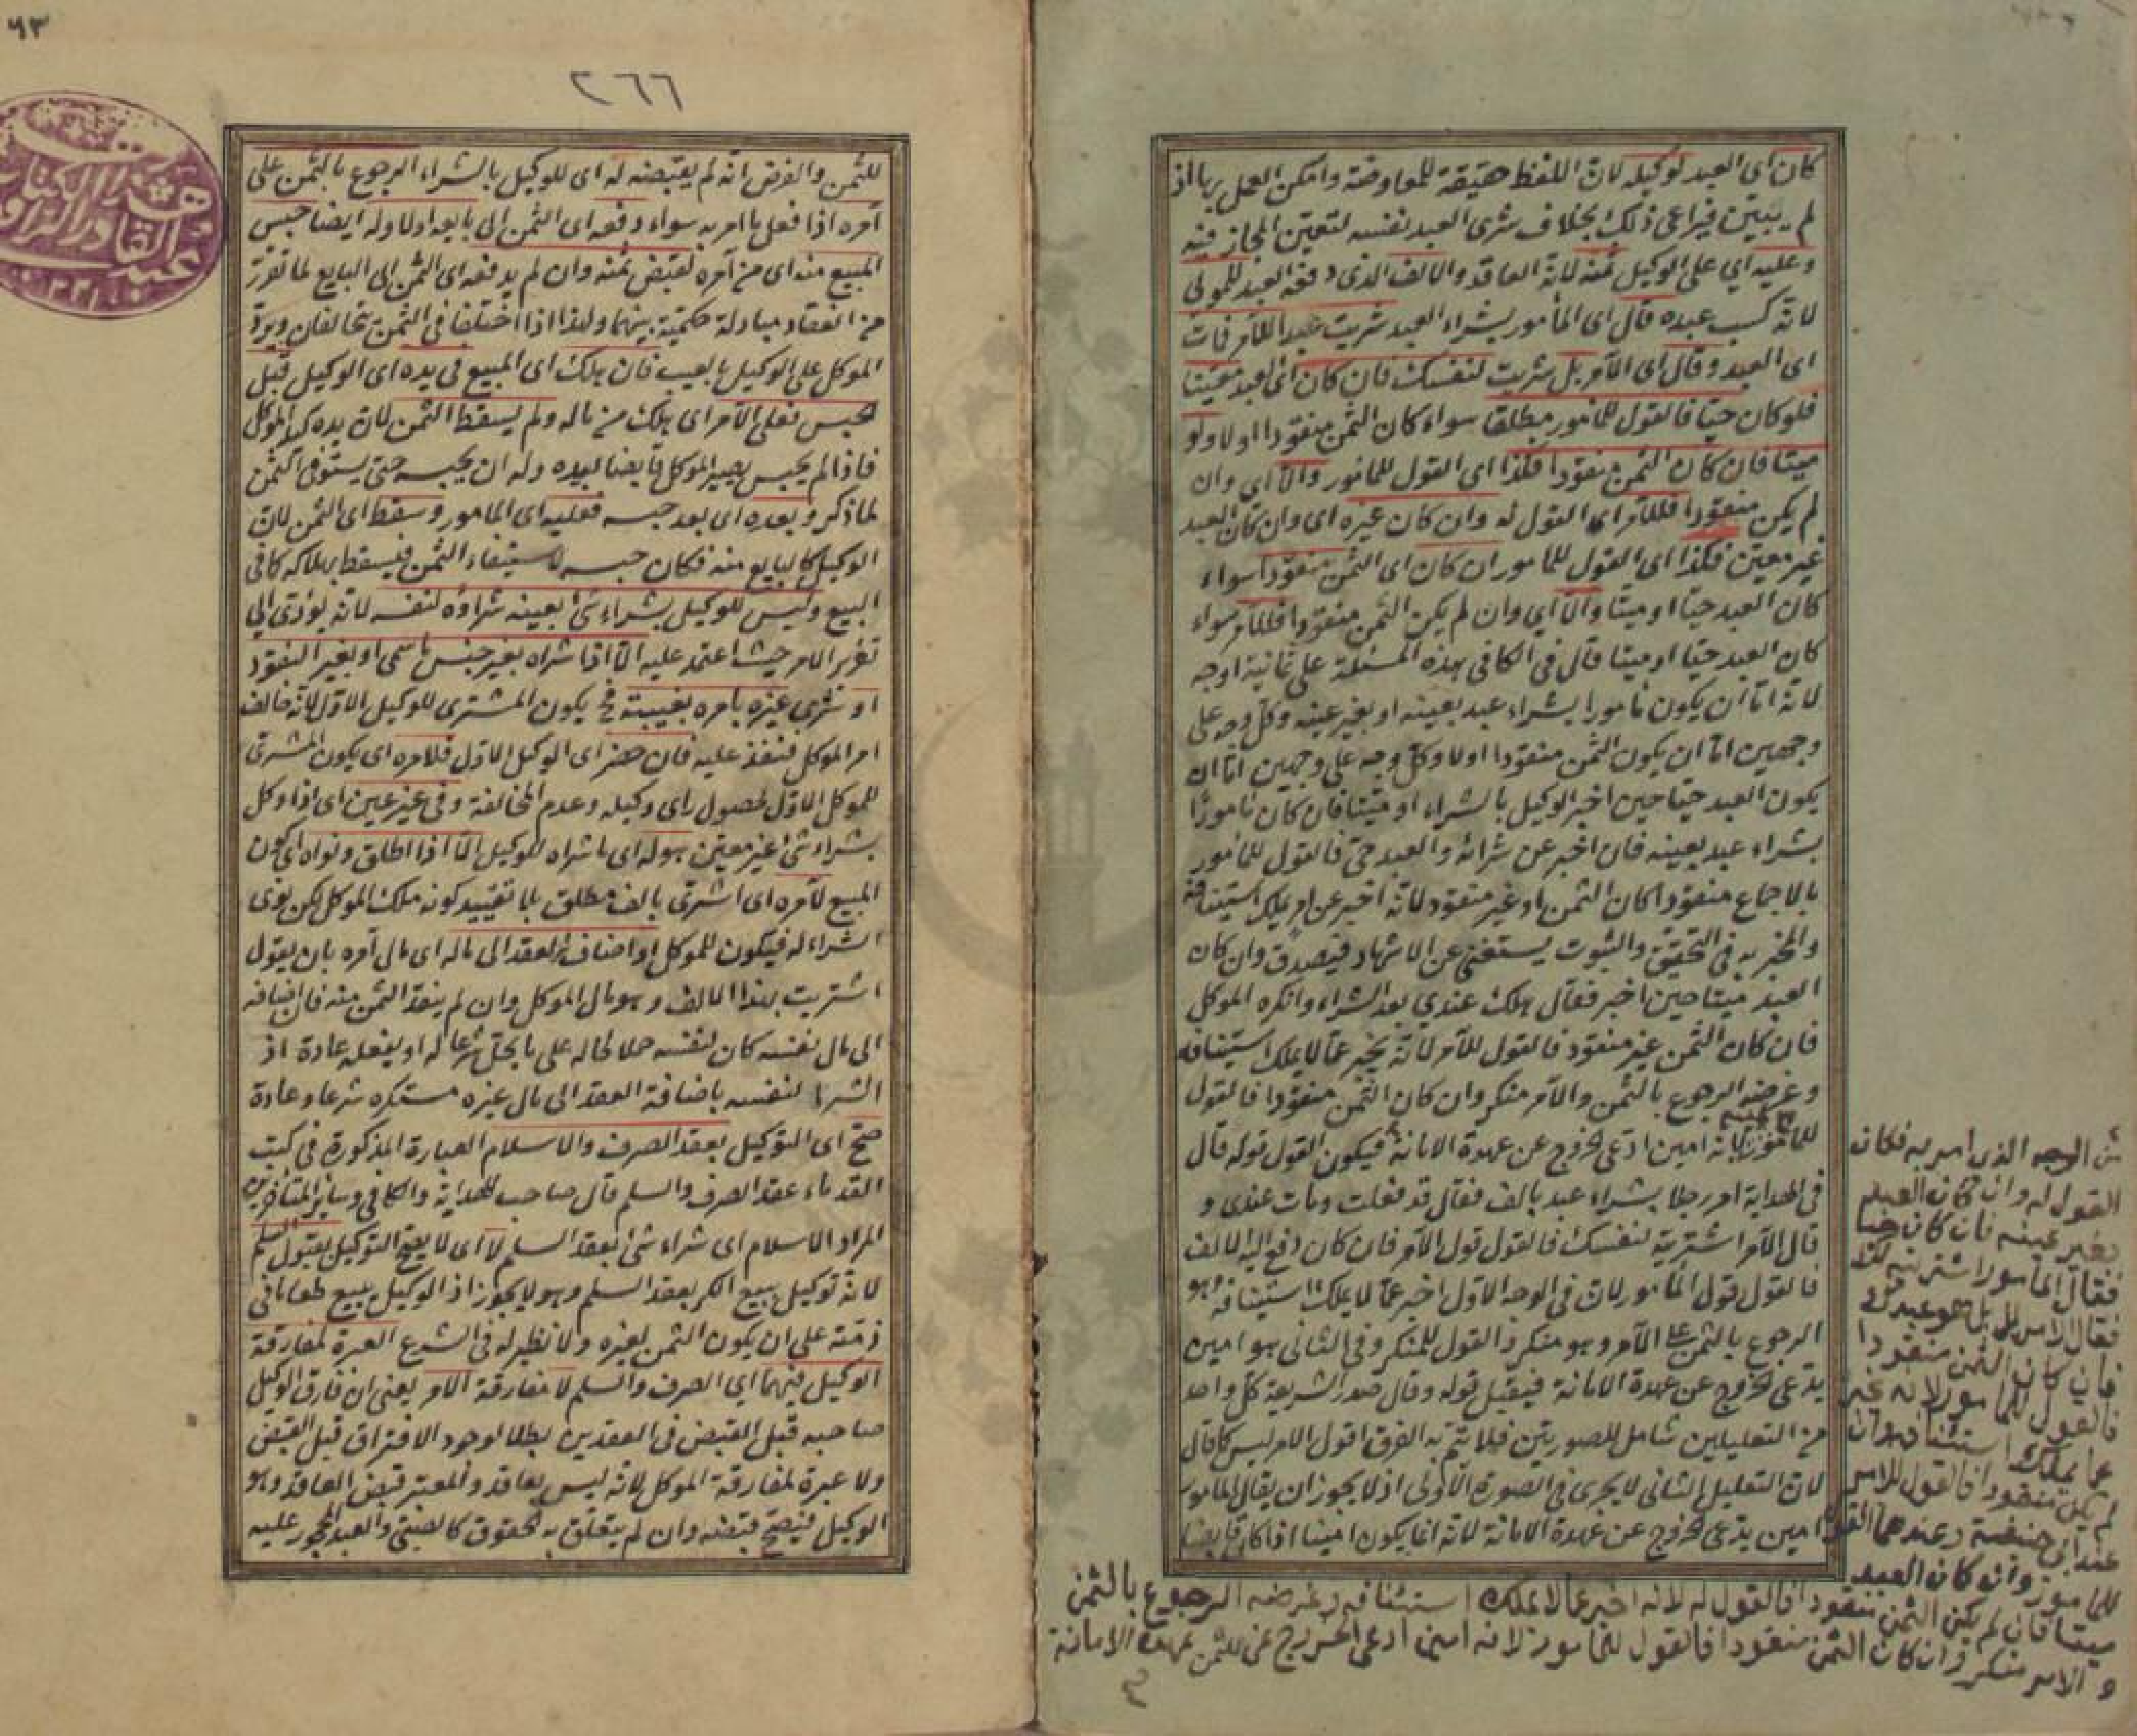 كان اى العبد لوكيله لان اللفظ حقيقة للمعاوضة وامكن العمل بها اذ
لم يتبين فيراعى ذلك بخلاف شرى العبد نفسه لتعين المجاز فيه
وعليه اي على الوكيل ثمنه لانه العاقد والالف الذى دفعه العبد للمولى
لانه كسب عبده قال اى المأمور بشراء العبد شريت عبدا للآمر فمات
اى العبد وقال اى الآمر بل شريت لنفسك فان كان اى العبد معينا
فلو كان حيا فالقول للمأمور مطلقا سواء كان الثمن منقودا اولا ولو
ميتا فان كان الثمن منقودا فكذا اى القول للمأمور والا اى وان
لم يكن منقودا فللآمر اى القول له وان كان غيره اى وان كان العبد
غير معين فكذا اى القول للمأمور ان كان اى الثمن منقودا سواء
كان العبد حيا او ميتا والا اي وان لم يكن الثمن منقودا فللآمر سواء
كان العبد حيا او ميتا قال فى الكافى هذه المسئلة على ثمانية اوجه
لانه اما ان يكون مأمورا بشراء عبد بعينه او بغير عينه وكل وجه على
وجهين اما ان يكون الثمن منقودا اولا وكل وجه على وجهين اما ان
يكون العبد حيا حين اخبر الوكيل بالشراء او ميتا فان كان مأمورا
بشراء عبد بعينه فان اخبر عن شرائه والعبد حى فالقول للمأمور
بالاجماع منقودا كان الثمن او غير منقود لانه اخبر عن امر يملك استينافه
والمخبر به فى التحقيق والثبوت يستغنى عن الاشهاد فيصدق وان كان
العبد ميتا حين اخبر فقال هلك عندي بعد الشراء وانكره الموكل
فان كان الثمن غير منقود فالقول للآمر لانه يخبر عما لا يملك استينافه
وغرضه الرجوع بالثمن والآمر منكر وان كان الثمن منقودا فالقول
للمأمور لانه امين ادعى الخروج عن عهدة الامانة فيكون القول قوله قال
فى الهداية امر رجلا بشراء عبد بالف فقال قد فعلت ومات عندى و
قال الآمر اشتريته لنفسك فالقول قول الآمر فان كان دفع اليه الالف
فالقول قول المأمور لان فى الوجه الاول اخبر عما لا يملك استينافه وهو
الرجوع بالثمن على الآمر وهو منكر والقول للمنكر وفى الثانى هو امين
يدعى الخروج عن عهدة الامانة فيقبل قوله وقال صدر الشريعة كل واحد
من التعليلين شامل للصورتين فلا يتم به الفرق اقول الامر ليس كما قال
لان التعليل الثانى لا يجرى فى الصورة الاولى اذ لا يجوز ان يقال المأمور
امين يدعى الخروج عن عهدة الامانة لانه انما يكون امينا اذا كان قابضا
الوجه الذى امر به فكان
القول له وان كان العبد
بغير عينه فان كان حيا
فقال المأمور اشتريته لك
فقال الآمر بل هو عبدك
فان كان الثمن منقودا
فالقول للمأمور لانه مخبر
عما يملك استينافه وان
لم يكن منقودا فالقول للآمر
عند ابى حنيفة وعندهما القول
للمأمور وان كان العبد
ميتا فان لم يكن الثمن منقودا فالقول له لانه اخبر عما لا يملك استينافه وغرضه الرجوع بالثمن
والآمر منكر وان كان الثمن منقودا فالقول للمأمور لانه امين ادعى الخروج عن عهدة الامانة
٦٣
٢٦٦
للثمن والفرض انه لم يقبضه له اى للوكيل بالشراء الرجوع بالثمن على
آمره اذا فعل ما امر به سواء دفعه اى الثمن الى بايعه اولا وله ايضا حبس
المبيع منه اى من آمره لقبض ثمنه وان لم يدفعه اى الثمن الى البايع لما تقرر
من انعقاد مبادلة حكمية بينهما ولهذا اذا اختلفا فى الثمن يتحالفان ويرد
الموكل على الوكيل بالعيب فان هلك اى المبيع فى يده اى الوكيل قبل
الحبس فعلى الآمر اى هلك من ماله ولم يسقط الثمن لان يده كيد الموكل
فاذا لم يحبس يصير الموكل قابضا بيده وله ان يحبسه حتى يستوفى الثمن
لما ذكر وبعده اى بعد حبسه فعليه اى المأمور وسقط اى الثمن لان
الوكيل كالبايع منه فكان حبسه لاستيفاء الثمن فيسقط بهلاكه كما فى
البيع وليس للوكيل بشراء شئ بعينه شراؤه لنفسه لانه يؤدى الى
تغرير الآمر حيث اعتمد عليه الا اذا شراه بغير جنس ما سمى او بغير النقود
او شرى غيره بامره بغيبته فح يكون المشترى للوكيل الاول لانه خالف
امر الموكل فنفذ عليه فان حضر اى الوكيل الاول فلآمره اى يكون المشرى
للموكل الاول لحصول راى وكيله وعدم المخالفة وفى غير عين اى اذا وكل
بشراء شئ غير معين هو له اى ما شراه للوكيل الا اذا اطلق ونواه اى كون
المبيع لآمره اى اشترى بالف مطلق بلا تقييد كونه ملك الموكل لكن نوى
الشراء له فيكون للموكل او اضاف العقد الى ماله اى مال آمره بان يقول
اشتريت بهذا الالف وهو مال الموكل وان لم ينقد الثمن منه فان اضافه
الى مال نفسه كان لنفسه حملا لحاله على ما يحل شرعا له او يفعله عادة اذ
الشرا لنفسه باضافة العقد الى مال غيره مستنكره شرعا وعادة
صح اى التوكيل بعقد الصرف والاسلام العبارة المذكورة فى كتب
القدماء عقد الصرف والسلم قال صاحب الهداية والكافى وسائر المتأخرين
المراد الاسلام اى شراء شئ بعقد السلم لا اى لا يصح التوكيل بقبول السلم
لانه توكيل ببيع الكر بعقد السلم وهو لا يجوز اذ الوكيل يبيع طعاما فى
ذمته على ان يكون الثمن لغيره ولا نظير له فى الشرع العبرة لمفارقة
الوكيل فيهما اي الصرف والسلم لا مفارقة الآمر يعنى ان فارق الوكيل
صاحبه قبل القبض فى العقدين بطلا لوجود الافتراق قبل القبض
ولا عبرة لمفارقة الموكل لانه ليس بعاقد والمعتبر قبض العاقد وهو
الوكيل فيصح قبضه وان لم يتعلق به الحقوق كالصبى والعبد المحجور عليه